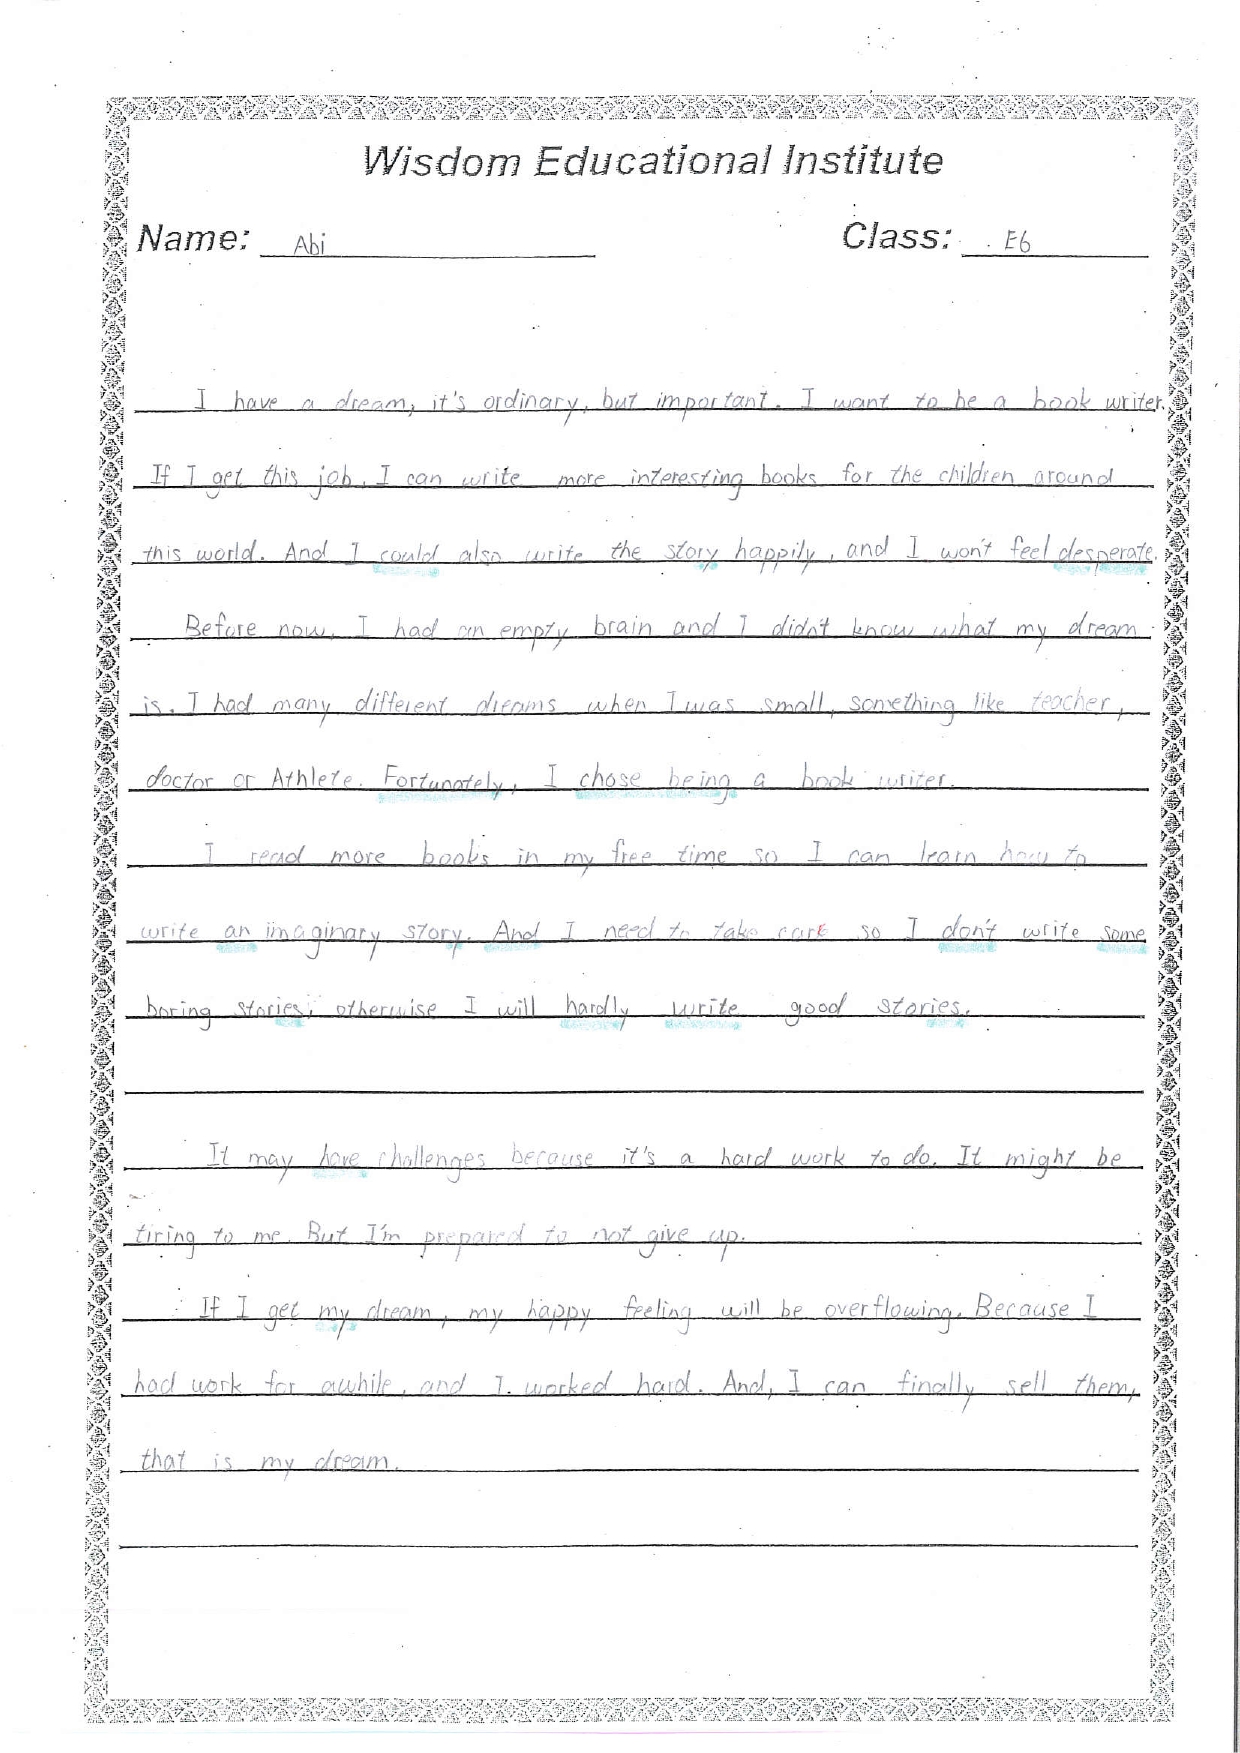 Wisdom Educational Institute
Name: Abi Class: E6
I have a dream, it's ordinary, but important. I want to be a book writer.
If I get this job, I can write more interesting books for the children around
this world. And I could also write the story happily, and I won't feel desperate.
Before now, I had an empty brain and I didn't know what my dream
is. I had many different dreams when I was small, something like teacher,
doctor or Athlete. Fortunately, I chose being a book writer.
I read more books in my free time so I can learn how to
write an imaginary story. And I need to take care so I don't write some
boring stories, otherwise I will hardly write good stories.
It may have challenges because it's a hard work to do. It might be
tiring to me. But I'm prepared to not give up.
If I get my dream, my happy feeling will be overflowing. Because I
had work for awhile, and I worked hard. And, I can finally sell them,
that is my dream.